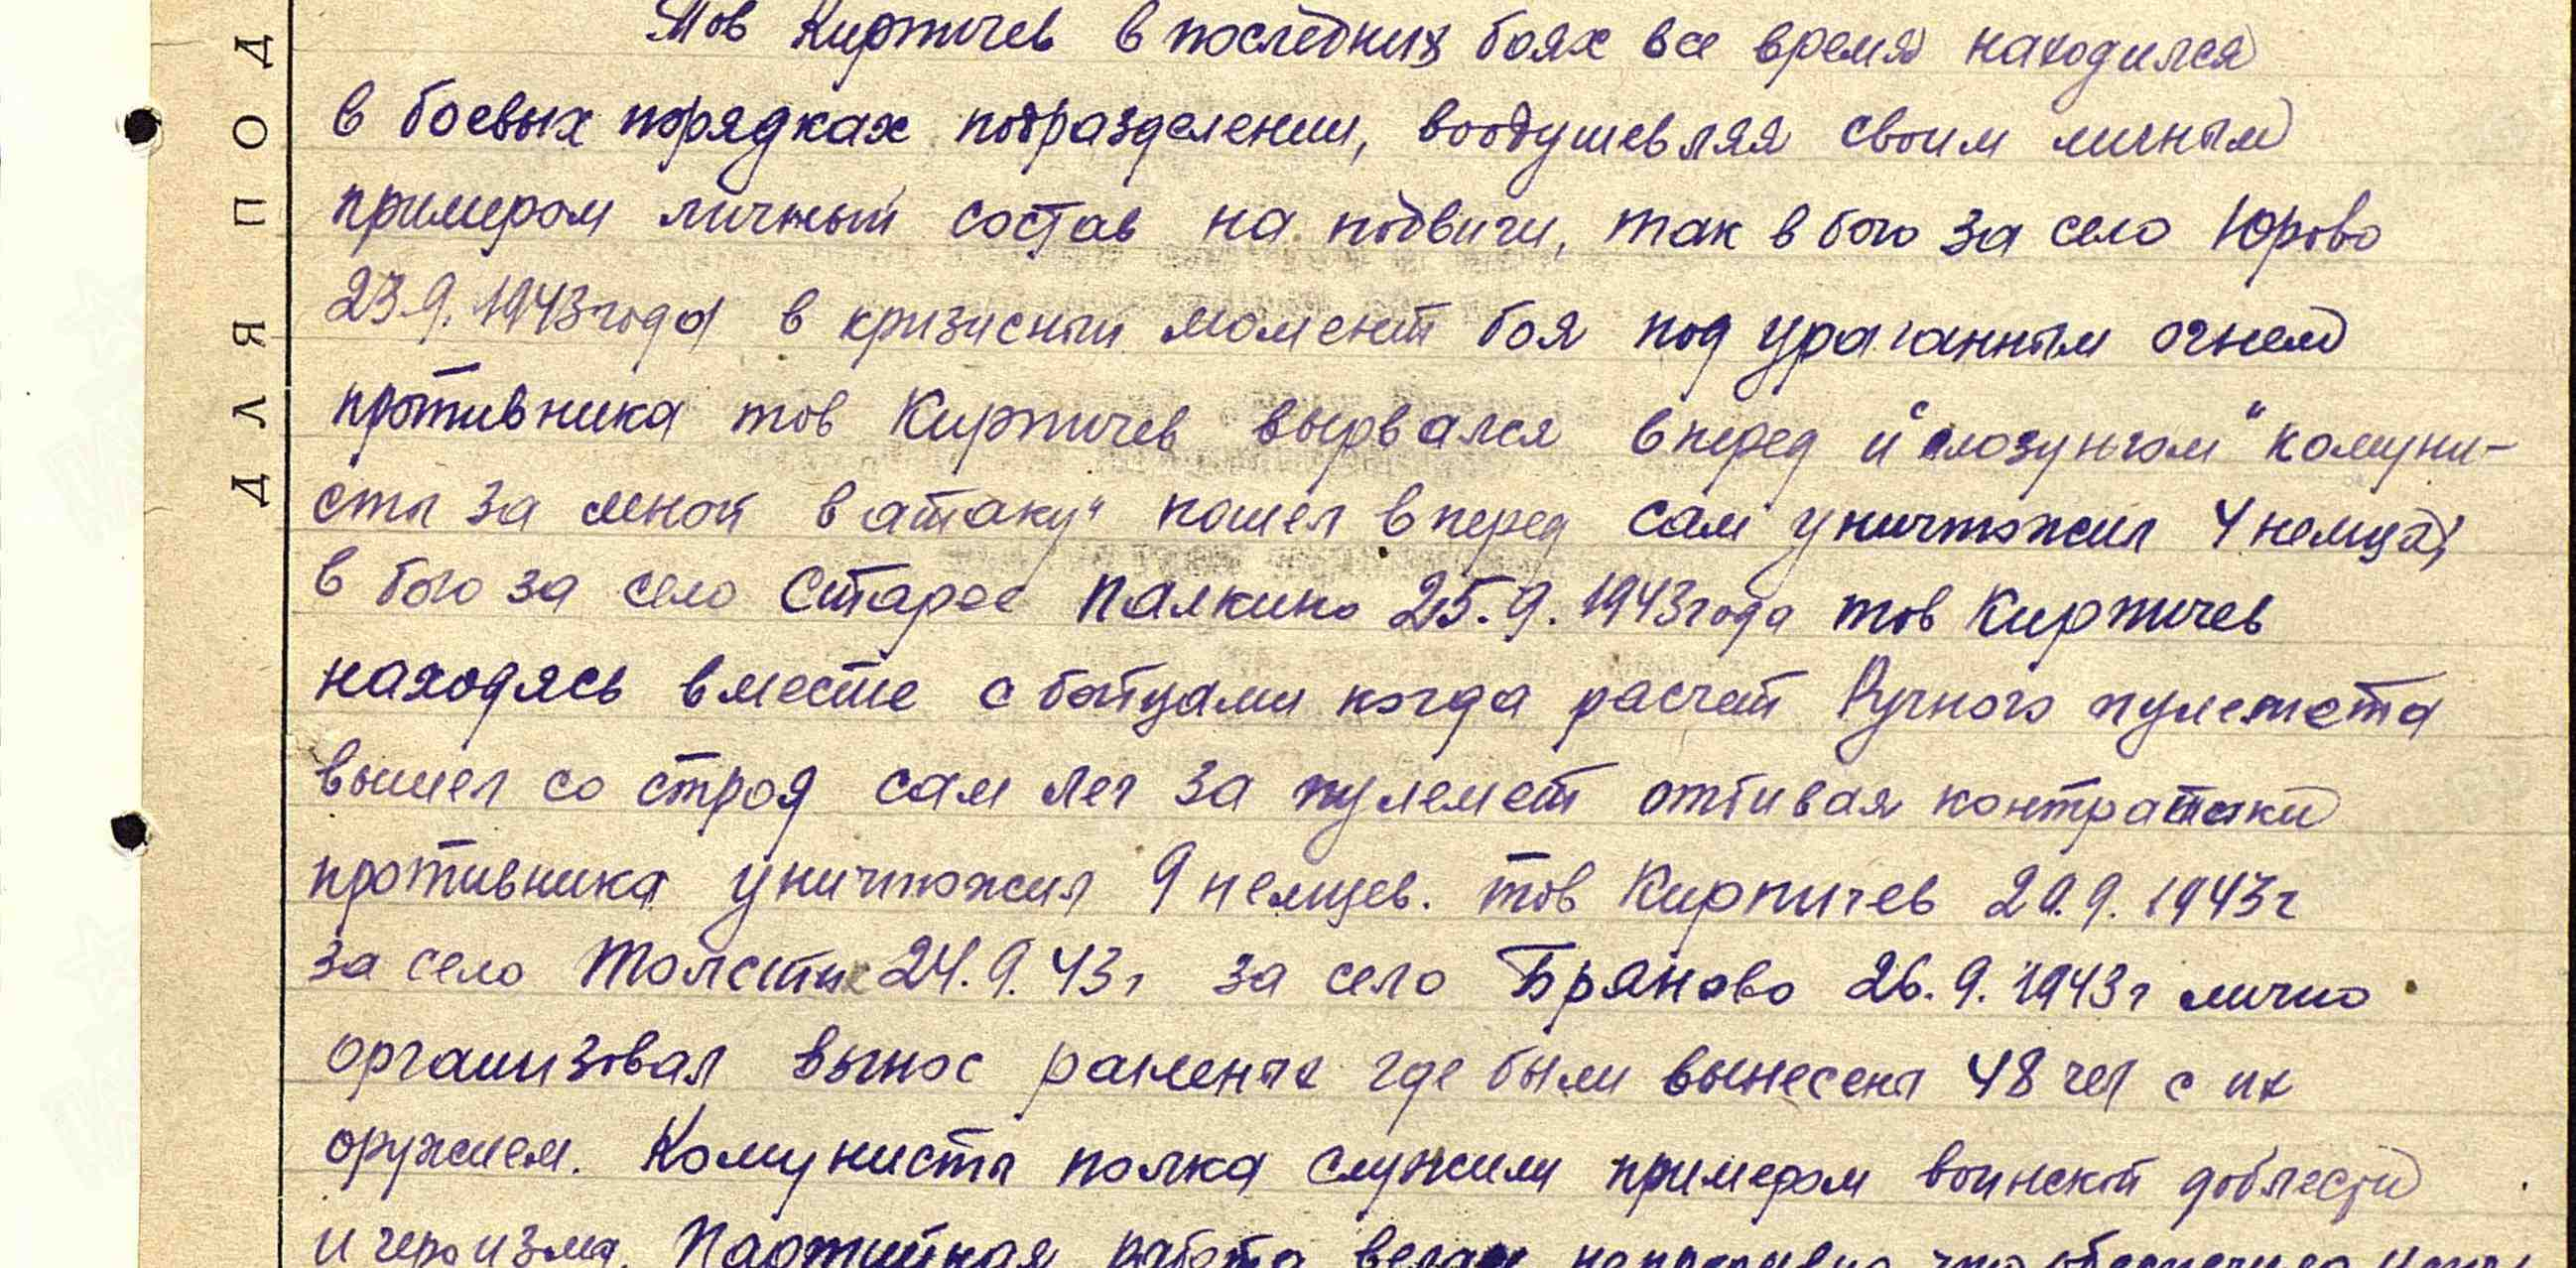 Тов Кирпичев в последних боях все время находился
в боевых порядках подразделении, воодушевляя своим личным
примером личный состав на подвиги, так в бою за село Юрово
23.9.1943 года в кризисный момент боя под ураганным огнем
противника тов Кирпичев вырвался вперед и "слозунгом" "комуни-
сты за мной в атаку" пошел вперед сам уничтожил 4 немца;
в бою за село Старое Палкино 25.9.1943 года тов Кирпичев
находясь вместе с бойцами когда расчет Ручного пулемета
вышел со строя сам лег за пулемет отбивая контратаки
противника уничтожил 9 немцев. тов Кирпичев 9.1943 г
за село Толсты 24.9.43 г за село Бряново 26.9.1943 г лично
организовал вынос раненых где были вынесены 48 чел с их
оружием. Комунисты полка служили примером воинской доблести
и героизма. Партийная работа
ДЛЯ ПОД